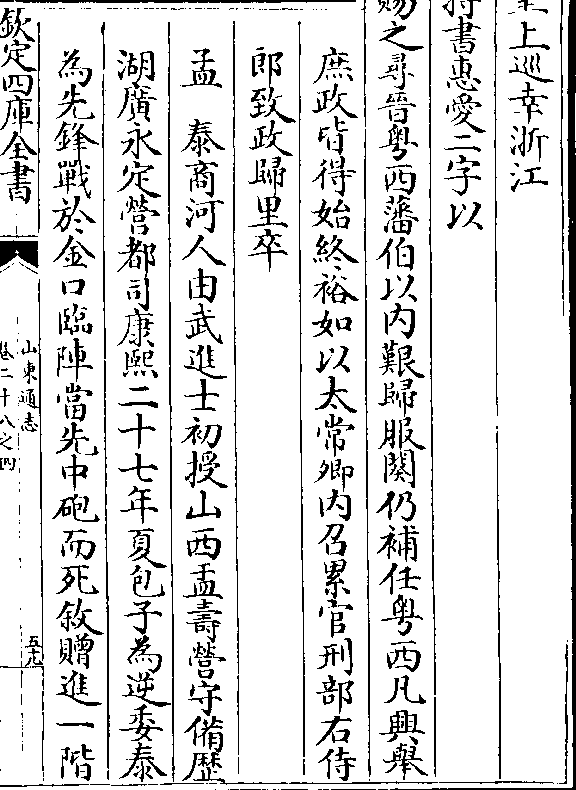 上巡幸浙江
書惠愛二字以
賜之尋晉粤西藩伯以内艱歸服闋仍補任粤西凡興舉
庶政皆得始終裕如以太常卿内召累官刑部右侍
郎致政歸里卒
孟　泰商河人由武進士初授山西盂壽營守備歴
湖廣永定營都司康熙二十七年夏包子為逆委泰
為先鋒戰於金口臨陣當先中砲而死敘贈進一階
欽定四庫全書
山東通志
卷二十八之四
五九